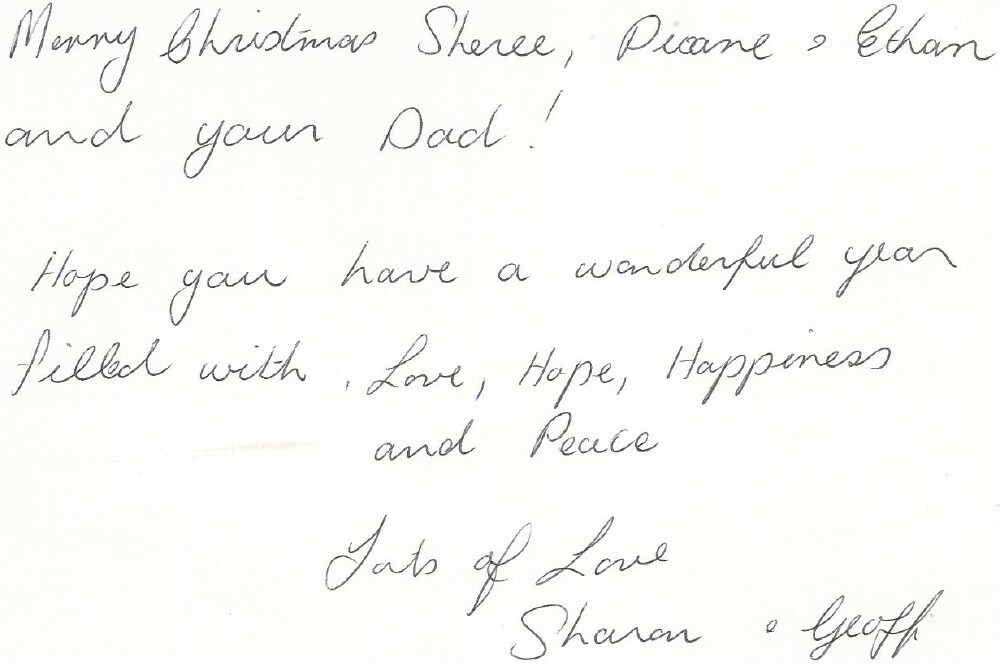 Merry Christmas Sheree, Dicane & Ethan
and your Dad!
Hope you have a wonderful year
filled with Love, Hope, Happiness
and Peace
Lots of Love
Sharon & Geoff